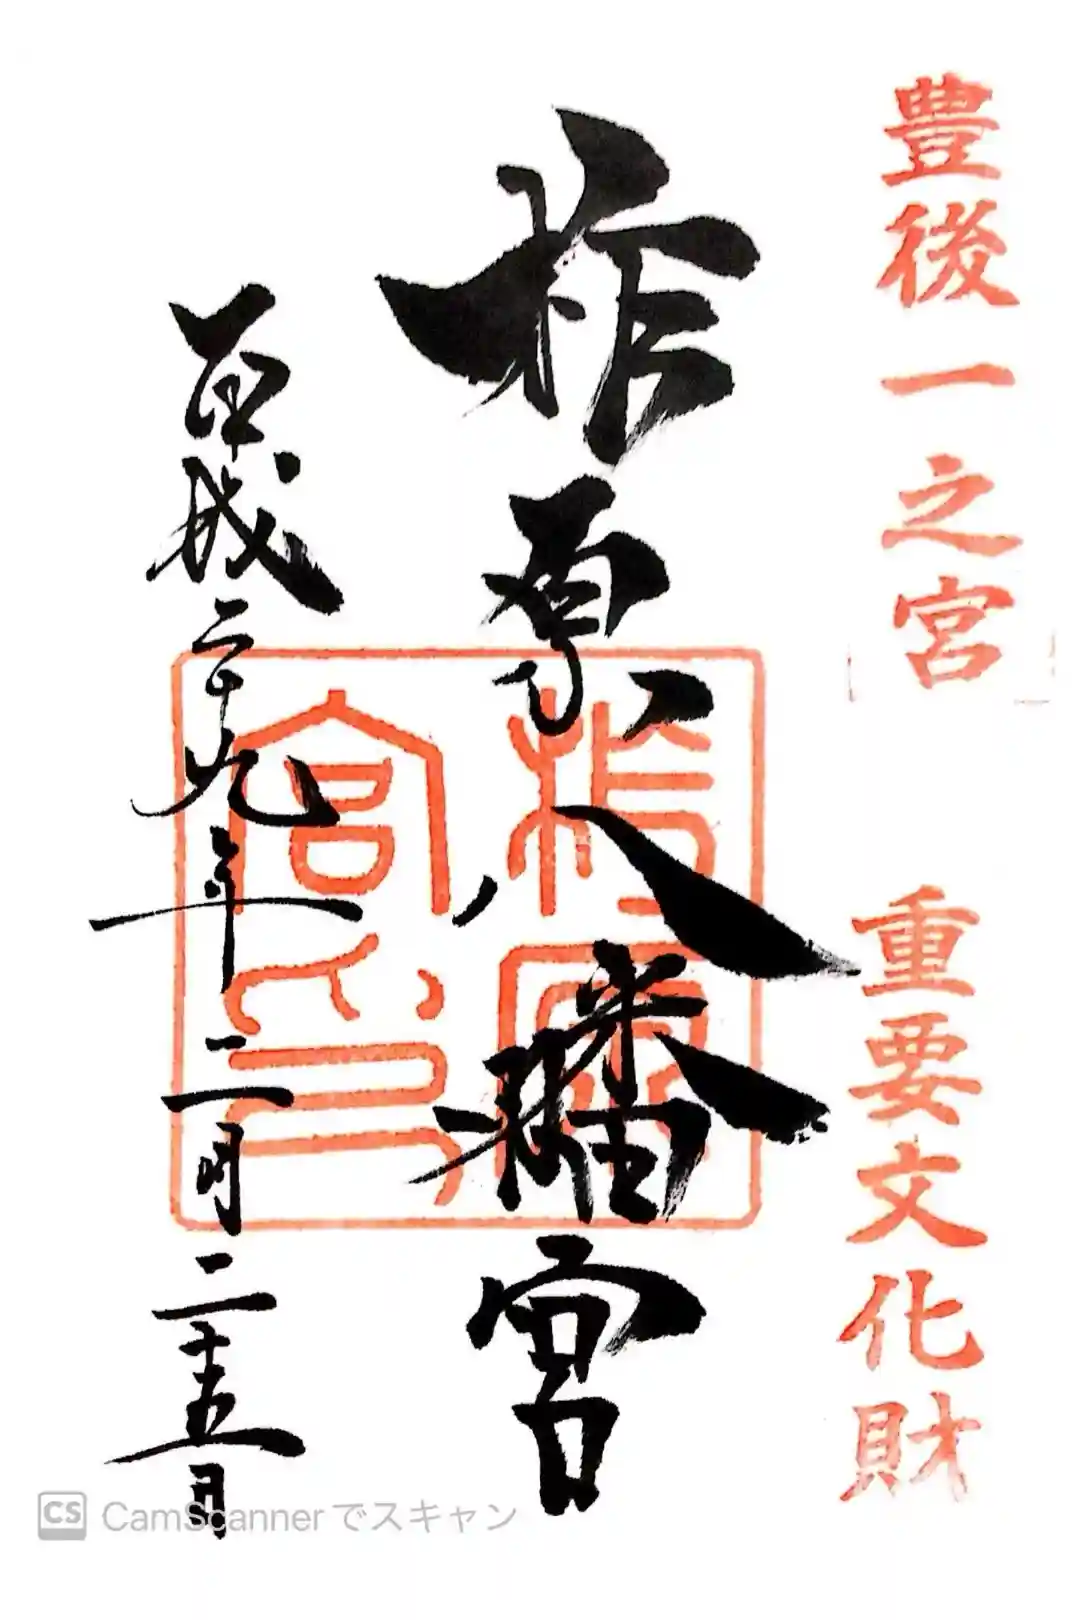 豊後一之宮 重要文化財
柞原八幡宮
平成二十九年二月二十五日
CS CamScannerでスキャン